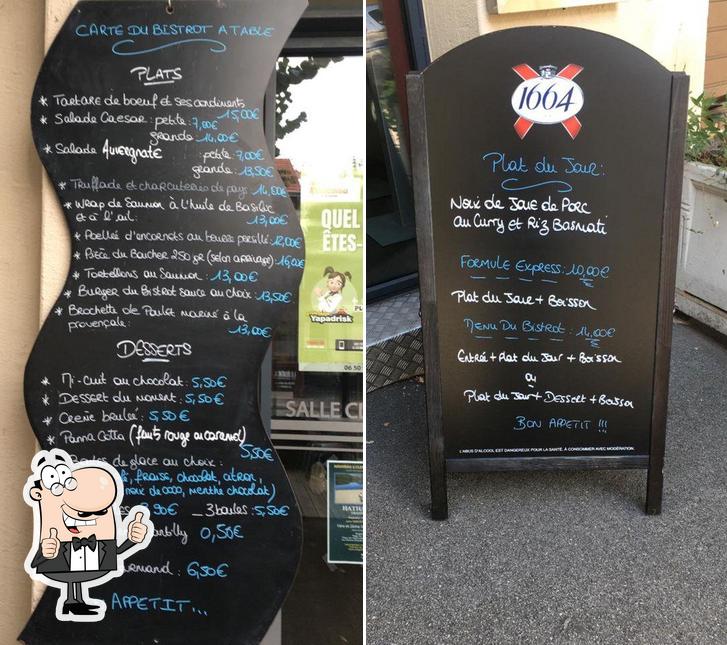 CARTE DU BISTROT A TABLE
PLATS
* Tartare de boeuf et ses condiments
15,00€
* Salade Caesar : petite : 7,00€
grande : 14,00€
* Salade Auvergnate petite : 7,00€
grande : 13,50€
* Truffade et charcuteries de pays : 14,00€
* Wrap de Saumon à l'huile de Basilic
et à l'ail : 13,00€
* Poellée d'encornets au beurre persillé : 12,00€
* Pièce du Boucher 250 gr (selon arrivage) : 16,00€
* Tortellonis au Saumon : 13,00€
* Burger du Bistrot sauce au choix : 13,50€
* Brochette de Poulet mariné à la
provençale : 13,00€
DESSERTS
* Mi-cuit au chocolat : 5,50€
* Dessert du moment : 5,50€
* Creme brulée : 5,50€
* Panna Cotta (fruits rouge ou caramel)
5,50€
de glace au choix :
fraise, chocolat, citron,
noix de coco, menthe chocolat)
3,90€ _ 3 boules : 5,50€
0,50€
6,50€
APPETIT...
QUEL
ÊTES-
Yapadrisk
SALLE CL
1664
Plat du Jour :
Noix de Joue de Porc
au Curry et Riz Basmati
FORMULE EXPRESS : 10,00€
Plat du Jour + Boisson
MENU DU BISTROT : 14,00€
Entrée + Plat du Jour + Boisson
ou
Plat du Jour + Dessert + Boisson
BON APPETIT !!!
L'ABUS D'ALCOOL EST DANGEREUX POUR LA SANTÉ. À CONSOMMER AVEC MODÉRATION.